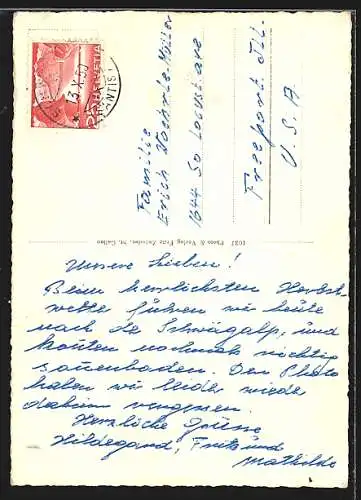 HELVETIA
13.X.50
Familie
Erich Wehrle-Müller
1644 So Locustave
Freeport Ill.
U.S.A
1037 Photo & Verlag Fritz Zwicker, St. Gallen
Unsere Lieben!
Beim herrlichsten Herbst-
wetter führen wir heute
nach der Schwägalp, und
konnten nochmals richtig
sonnenbaden. Den Photo
haben wir leider wieder
daheim vergessen.
Herzliche Grüsse
Hildegard, Fritz und
Mathilde